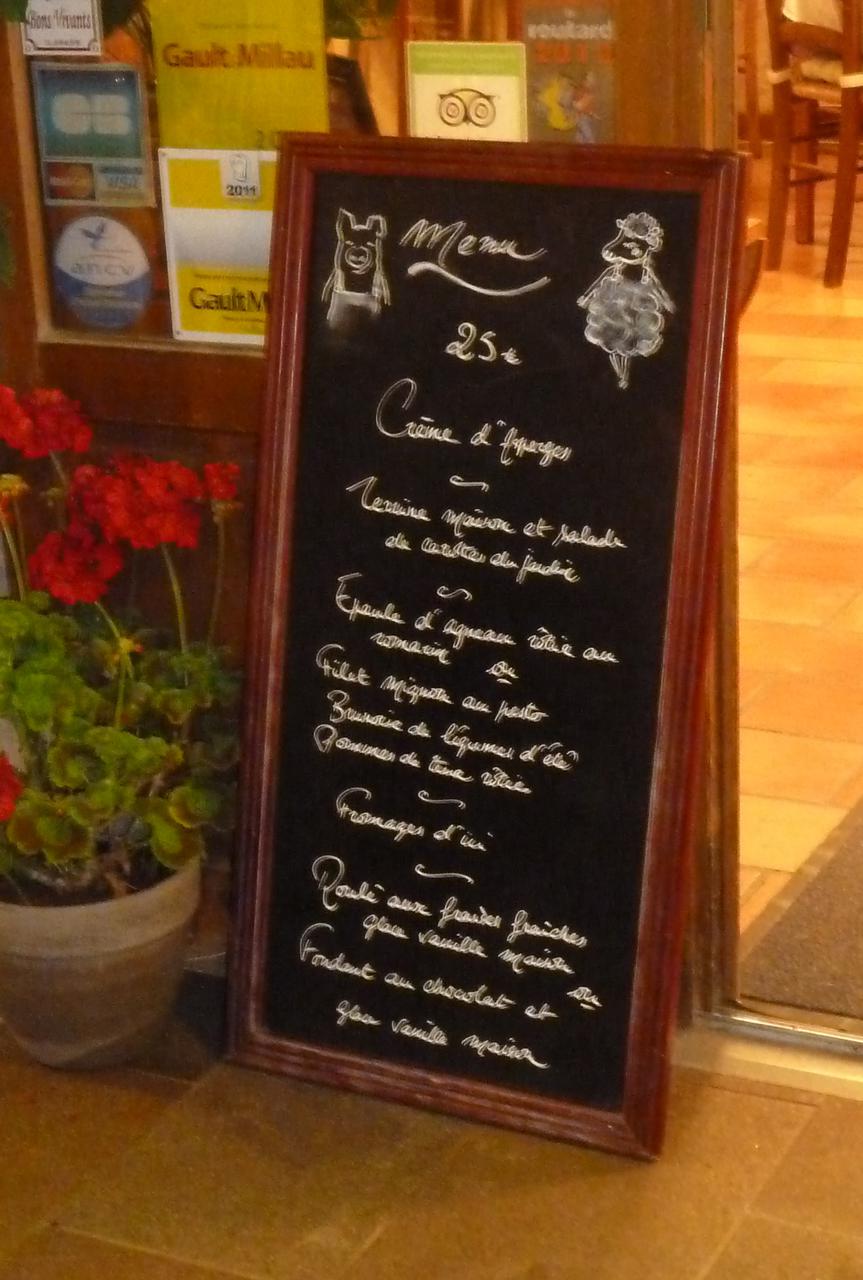 Bons Vivants
Gault Millau
routard
2011
CB
VISA
2011
ancv
GaultM
Menu
25 €
Crème d'Asperges
Terrine maison et salade
de carottes du jardin
Epaule d'agneau rôtie au
romarin ou
Filet mignon au pesto
Brunoise de légumes d'été
Pommes de terre rôties
Fromages d'ici
Roulé aux fraises fraîches
glace vanille maison
ou
Fondant au chocolat et
glace vanille maison